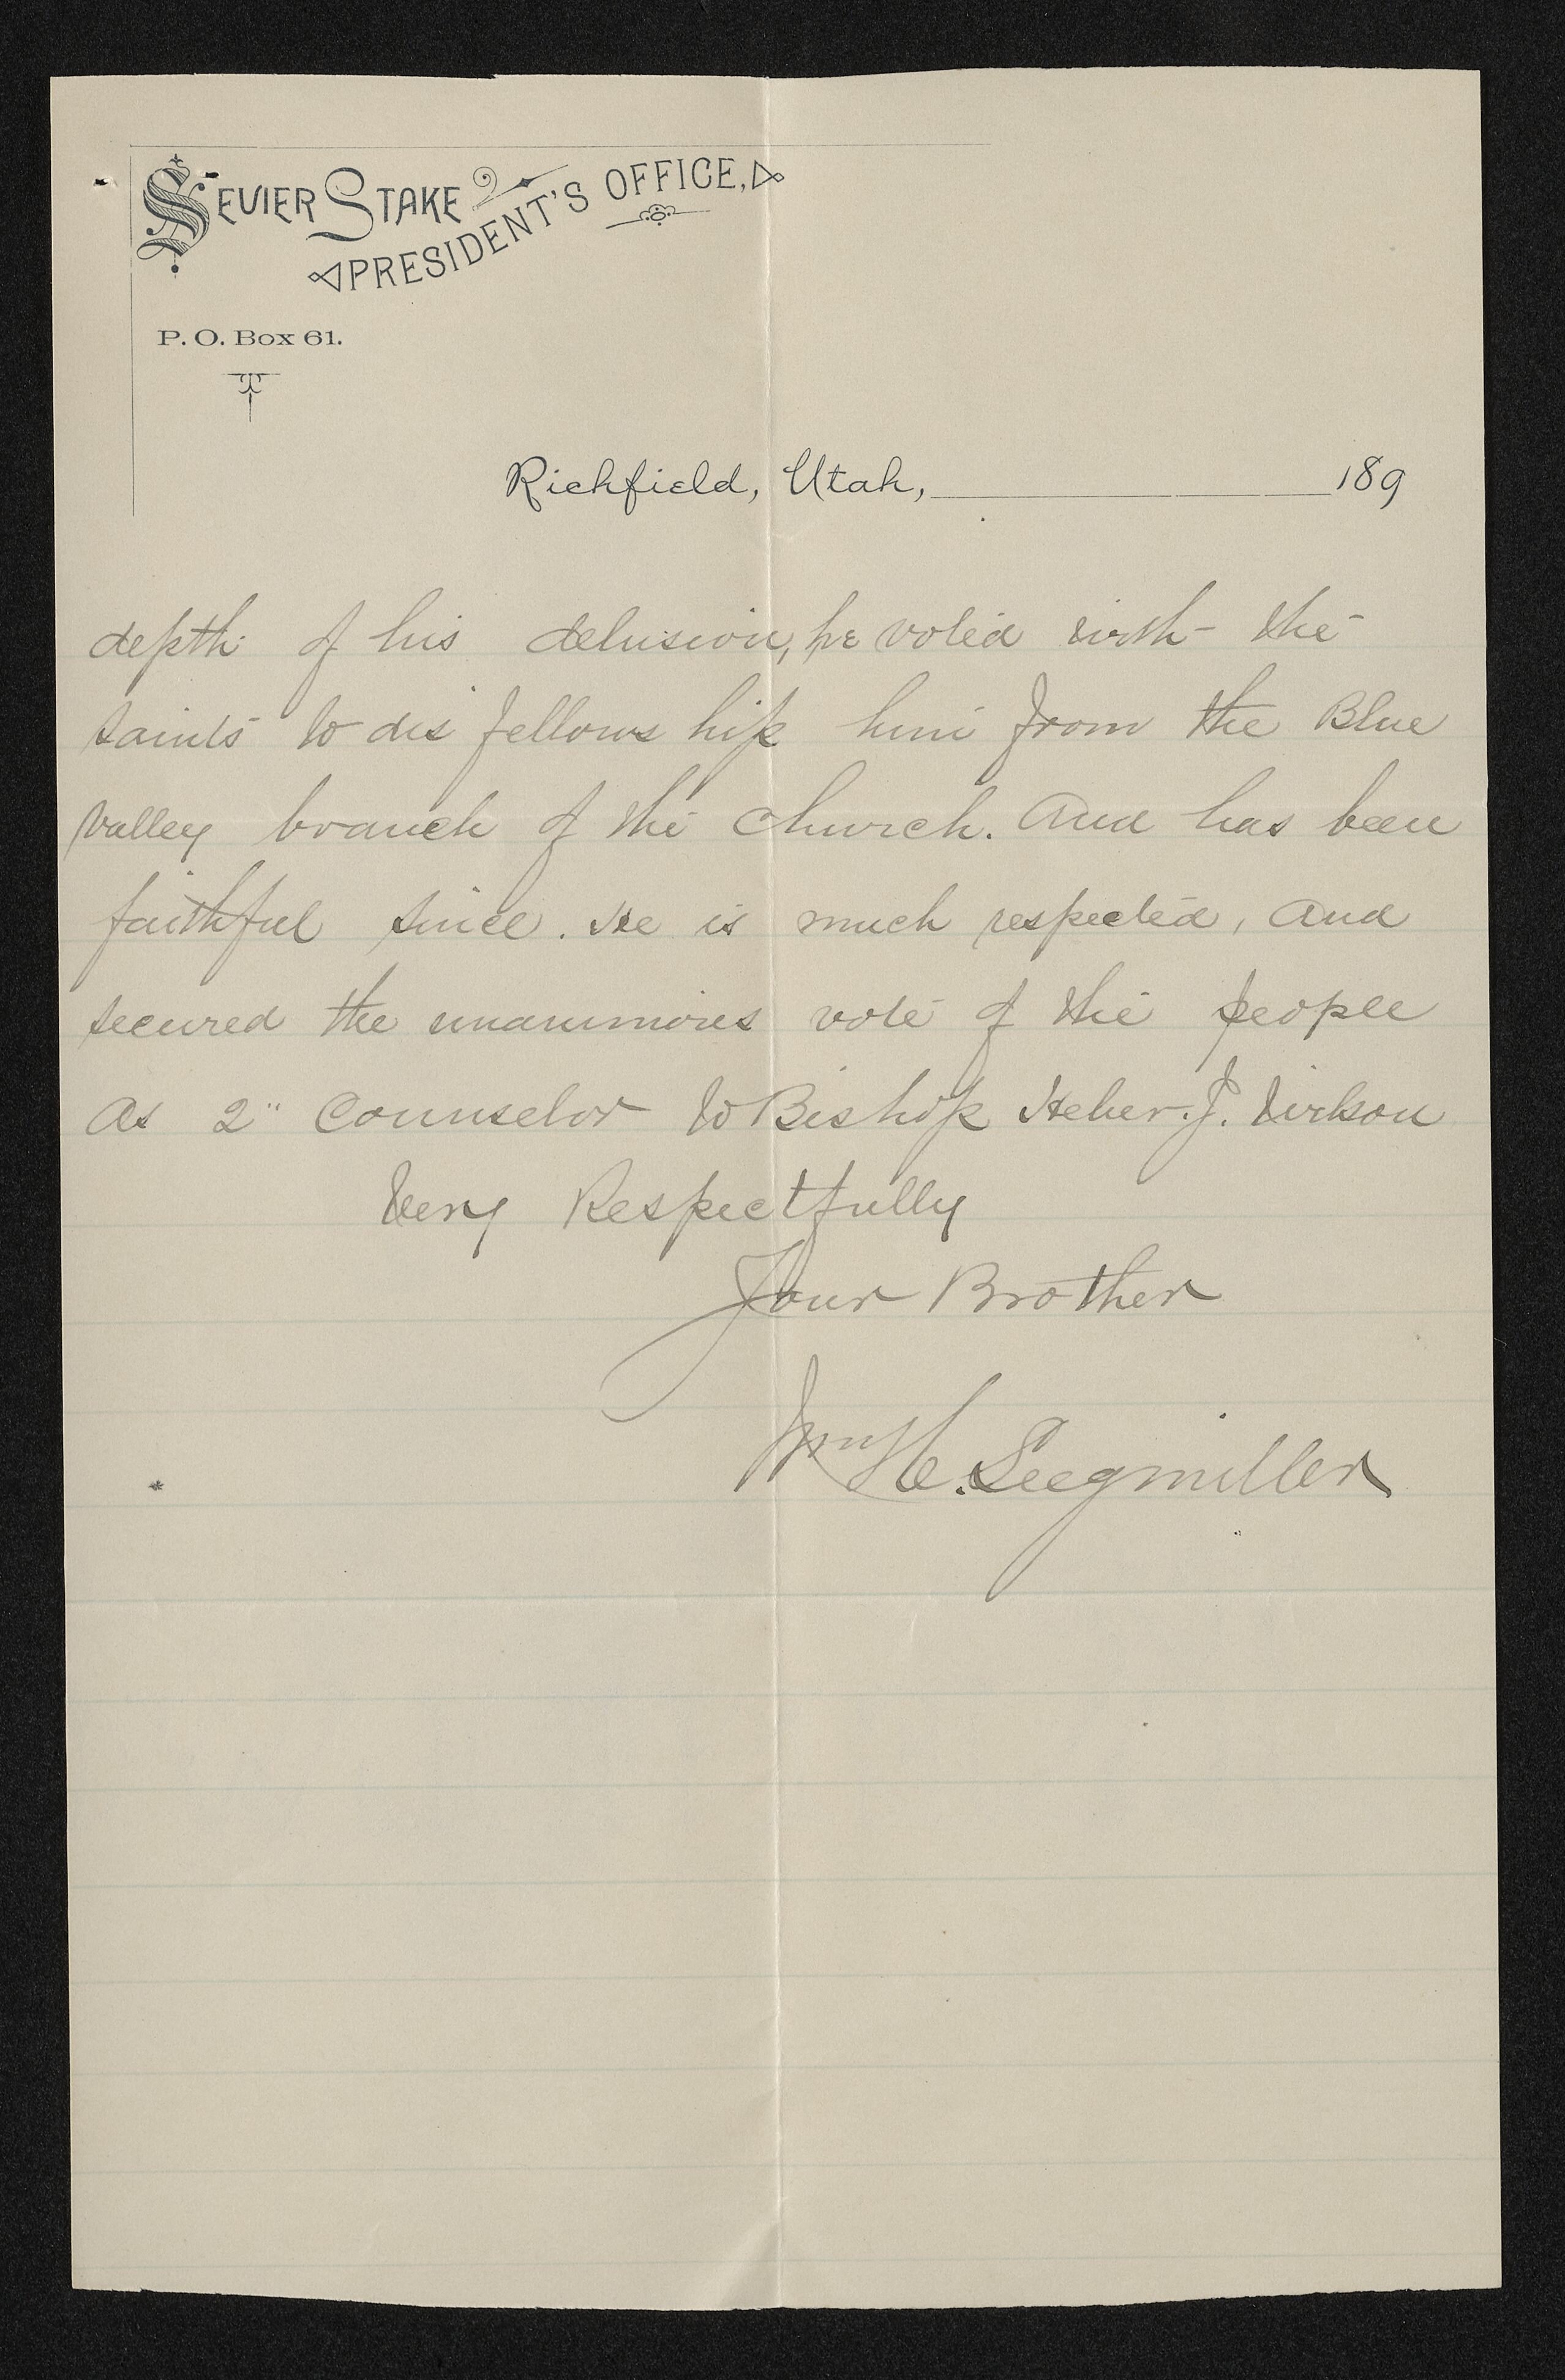 SEVIER STAKE
PRESIDENT'S OFFICE,
P. O. Box 61.
Richfield, Utah, 189
depth of his delusion, he voted with the
saints to dis fellows hip him from the Blue
valley branch of the church. And has been
faithful since. He is much respected, and
secured the unanimous vote of the people
as 2" Counselor to Bishop Heber J. Wilson
Very Respectfully
Your Brother
Wm H. Seegmiller